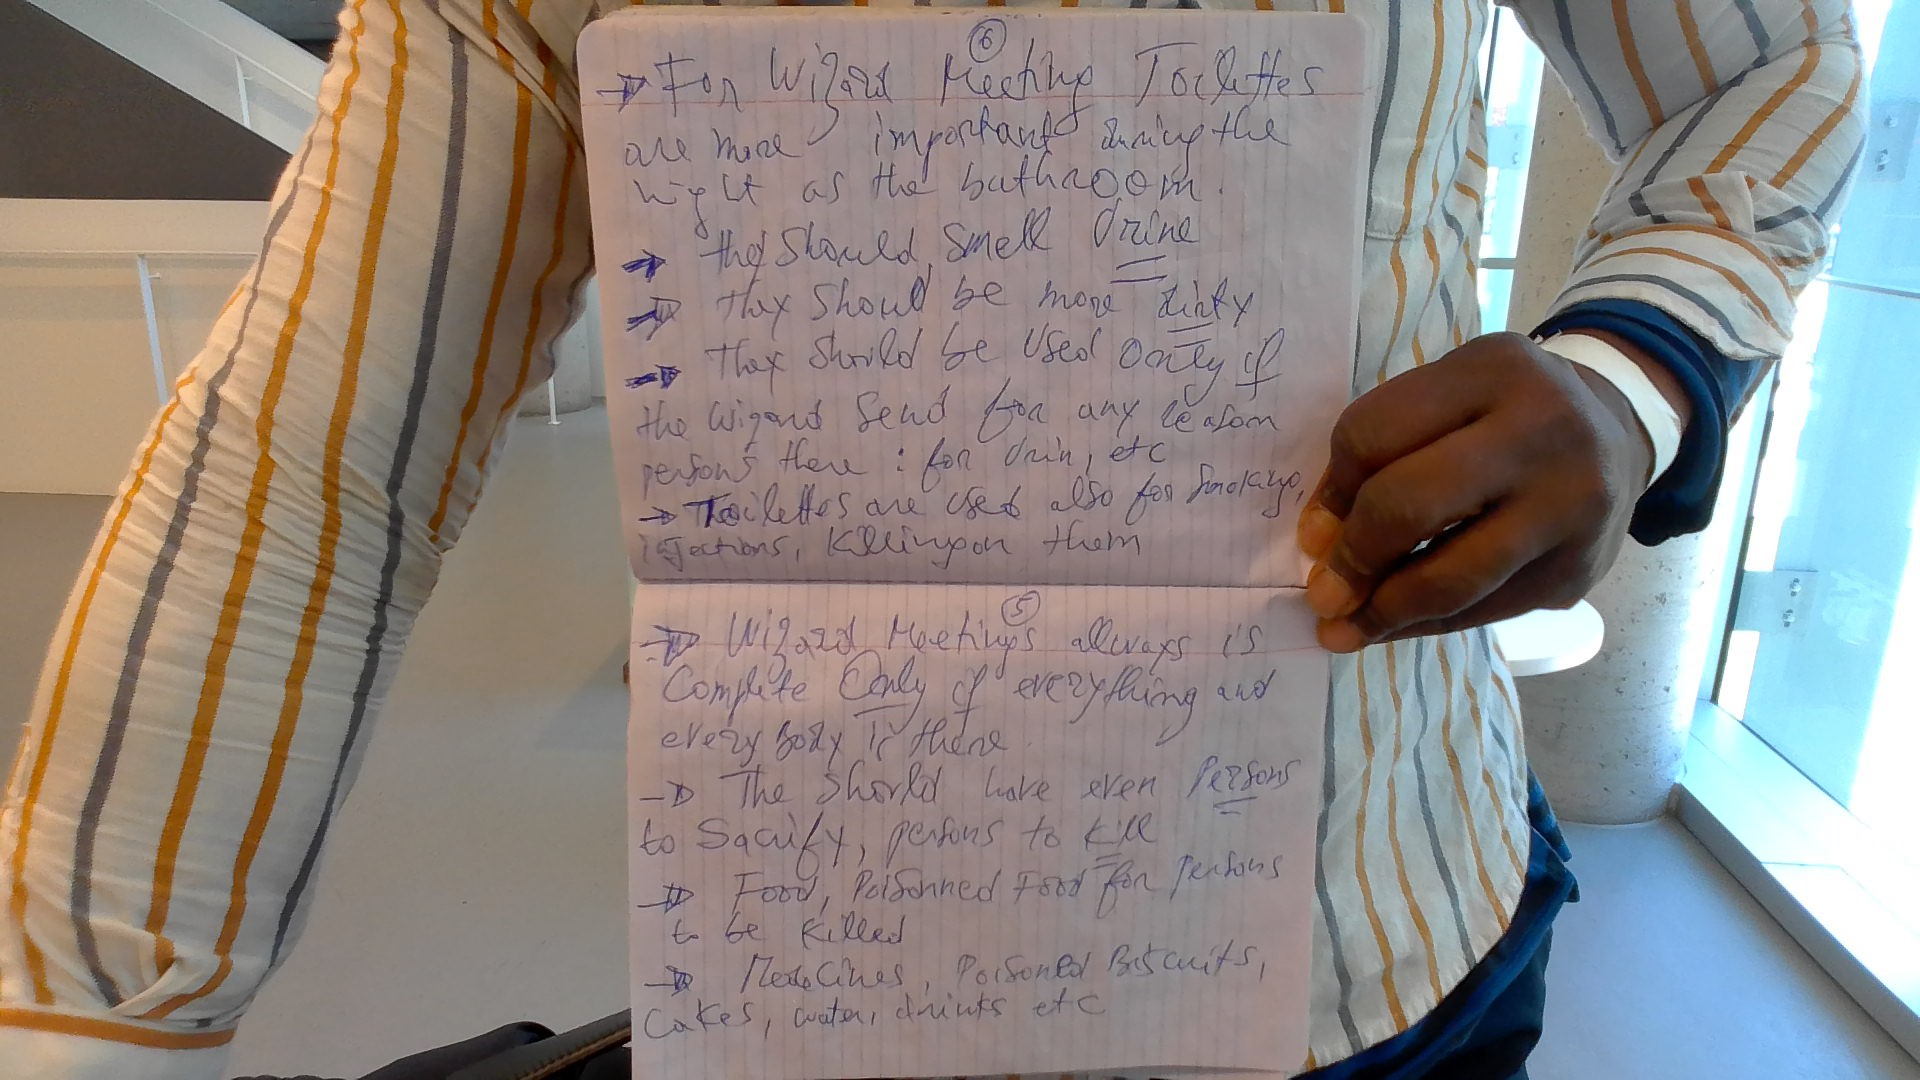 6
→ For Wizard Meeting Toilettes
are more important during the
night as the bathroom.
→ they should smell Urine
→ they should be more dirty
→ they should be used only if
the wizard send for any reason
persons there : for Urin, etc
→ Toilettes are used also for smoking,
injections, killing on them
5
→ Wizard Meetings allways is
Complete Only if everything and
every body is there
→ The should have even Persons
to Sacrify, persons to kill
→ Food, Poisonned Food for persons
to be killed
→ Medecines, Poisoned Biscuits,
Cakes, water, drinks etc